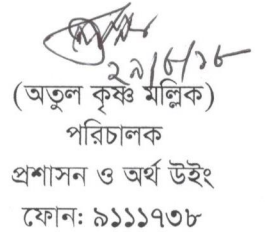 ২৯/৮/১৮
(অতুল কৃষ্ণ মল্লিক)
পরিচালক
প্রশাসন ও অর্থ উইং
ফোন: ৯১১১৭৩৮